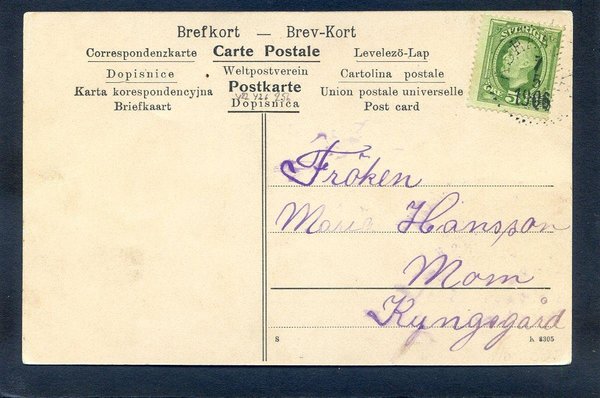 Brefkort — Brev-Kort
Correspondenzkarte Carte Postale Levelező-Lap
Dopisnice Weltpostverein Cartolina postale
Karta korespondencyjna Postkarte Union postale universelle
Briefkaart Dopisnica Post card
SVERIGE
5
1906
Fröken
Maria Hansson
Mom
Kyngsgård
S
h 8305